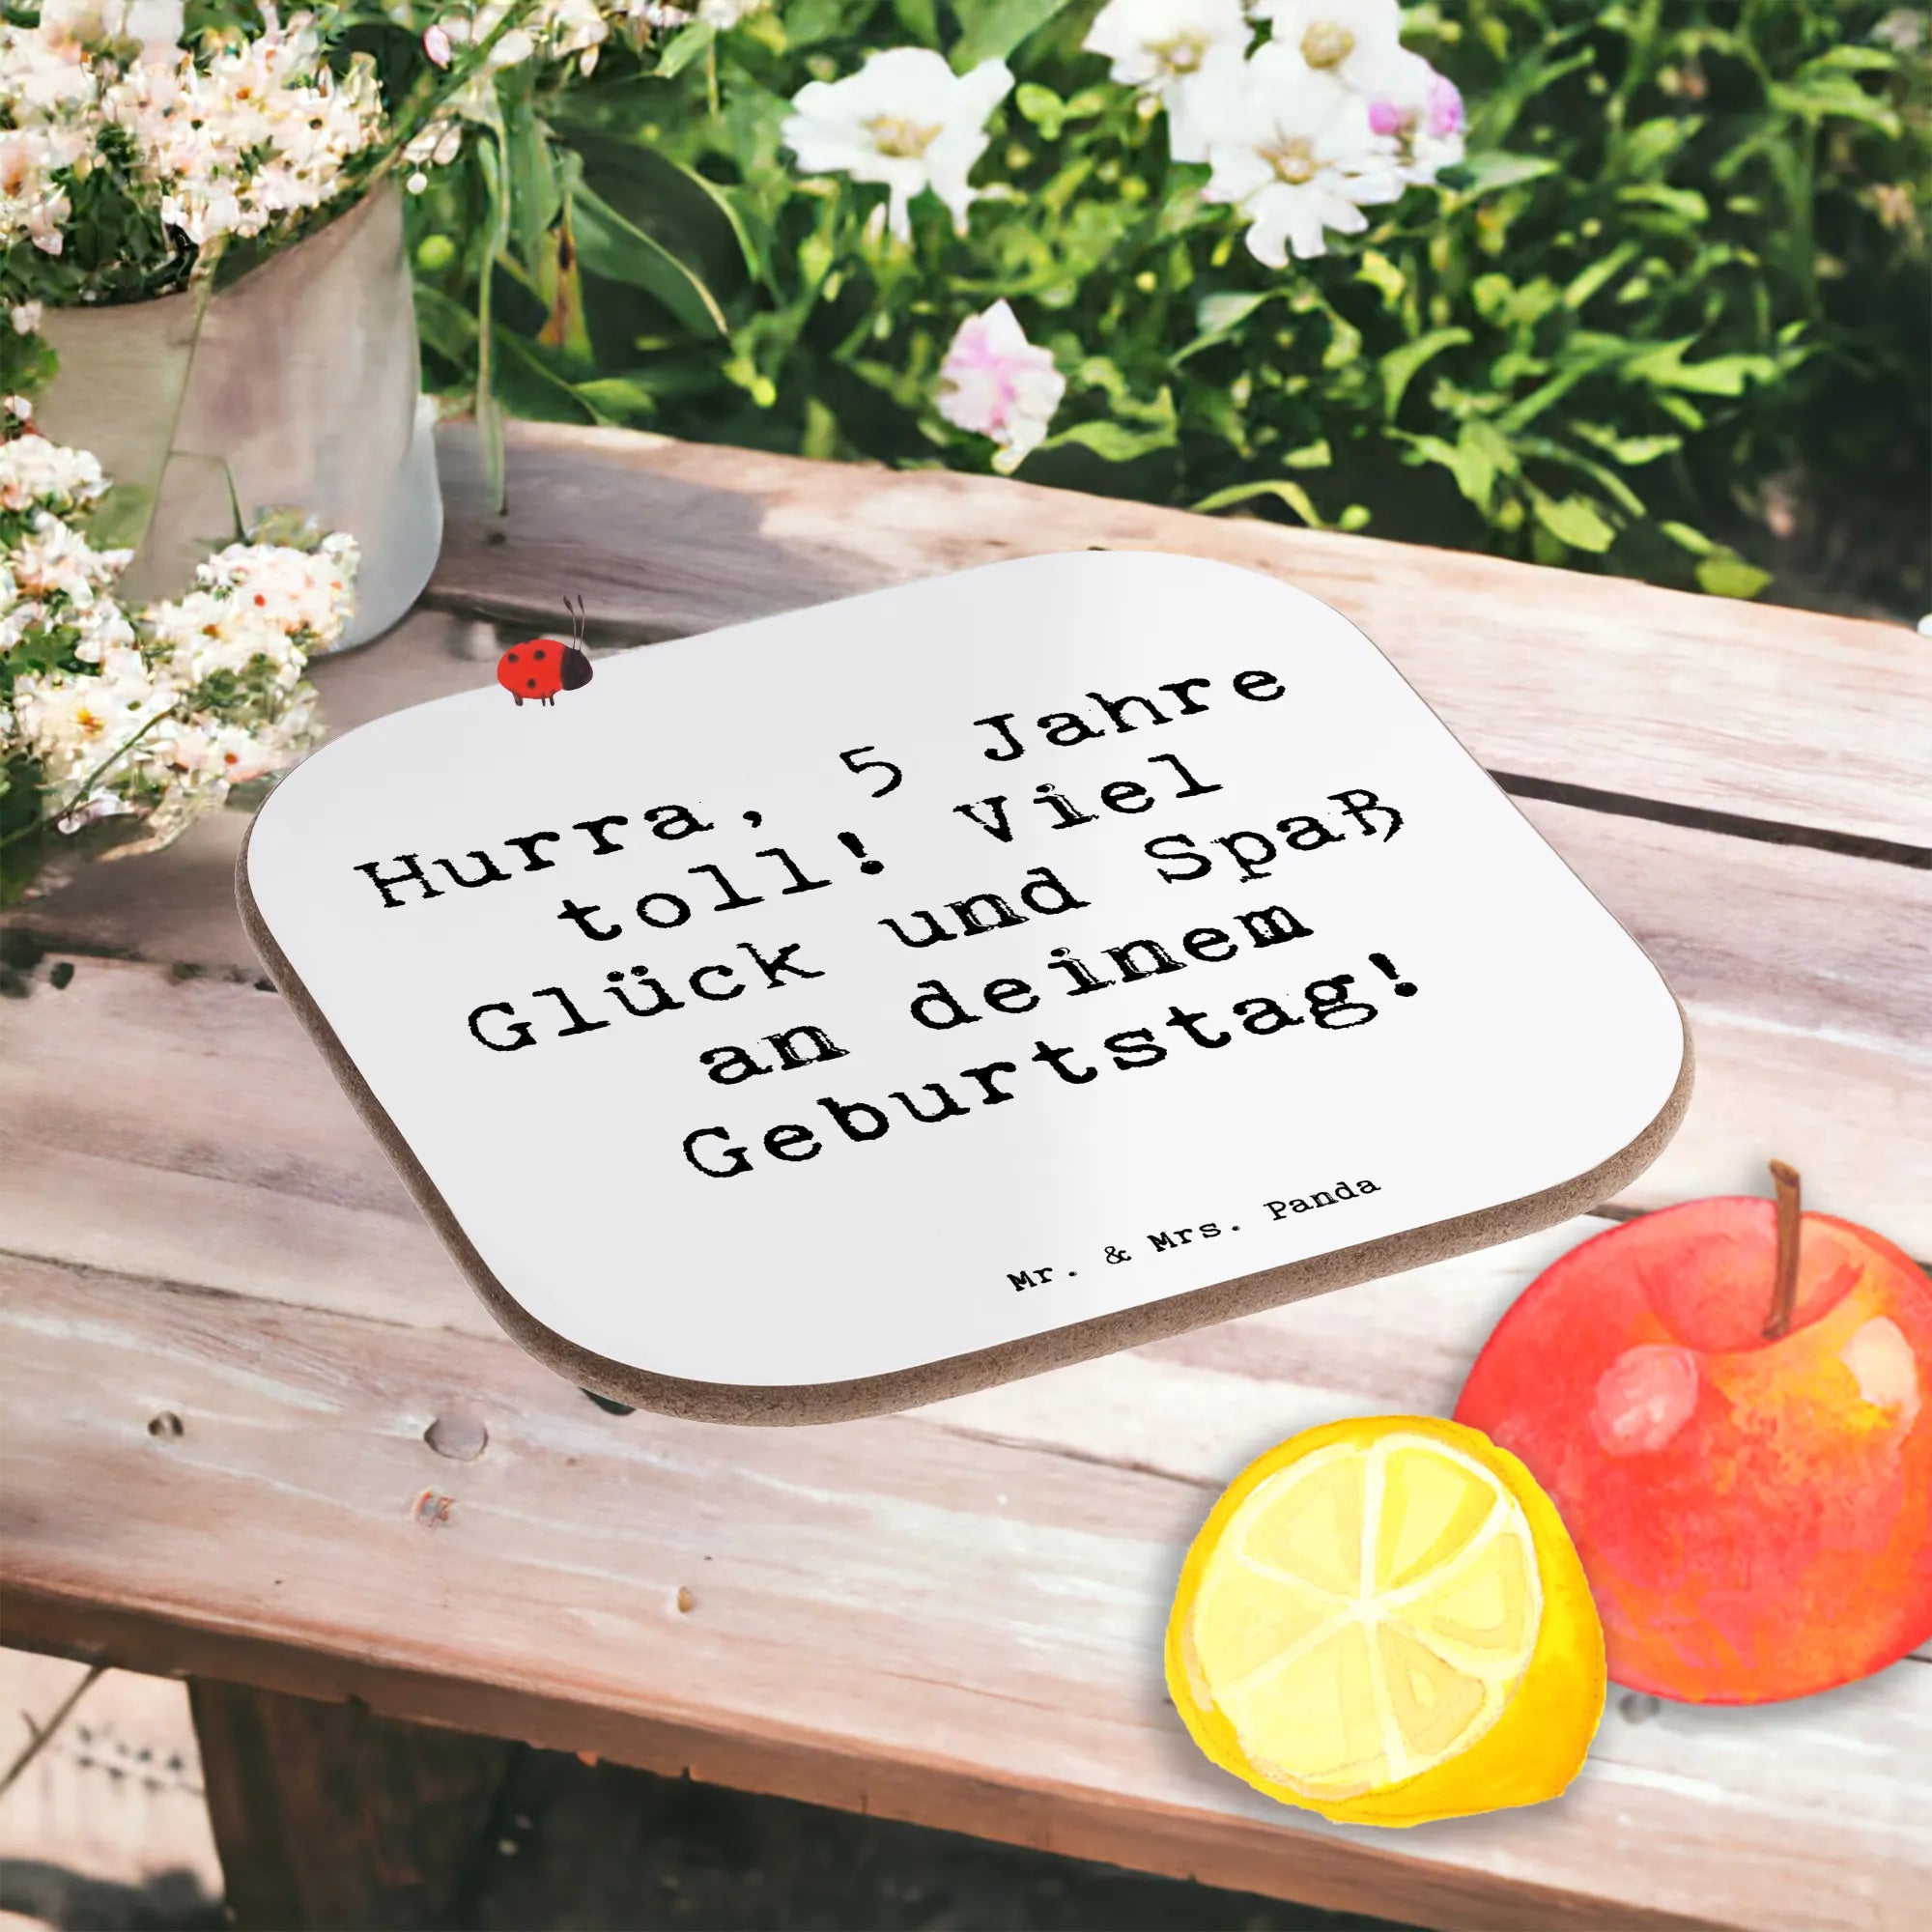 Hurra, 5 Jahre
toll! Viel
Glück und Spaß
an deinem
Geburtstag!
Mr. & Mrs. Panda